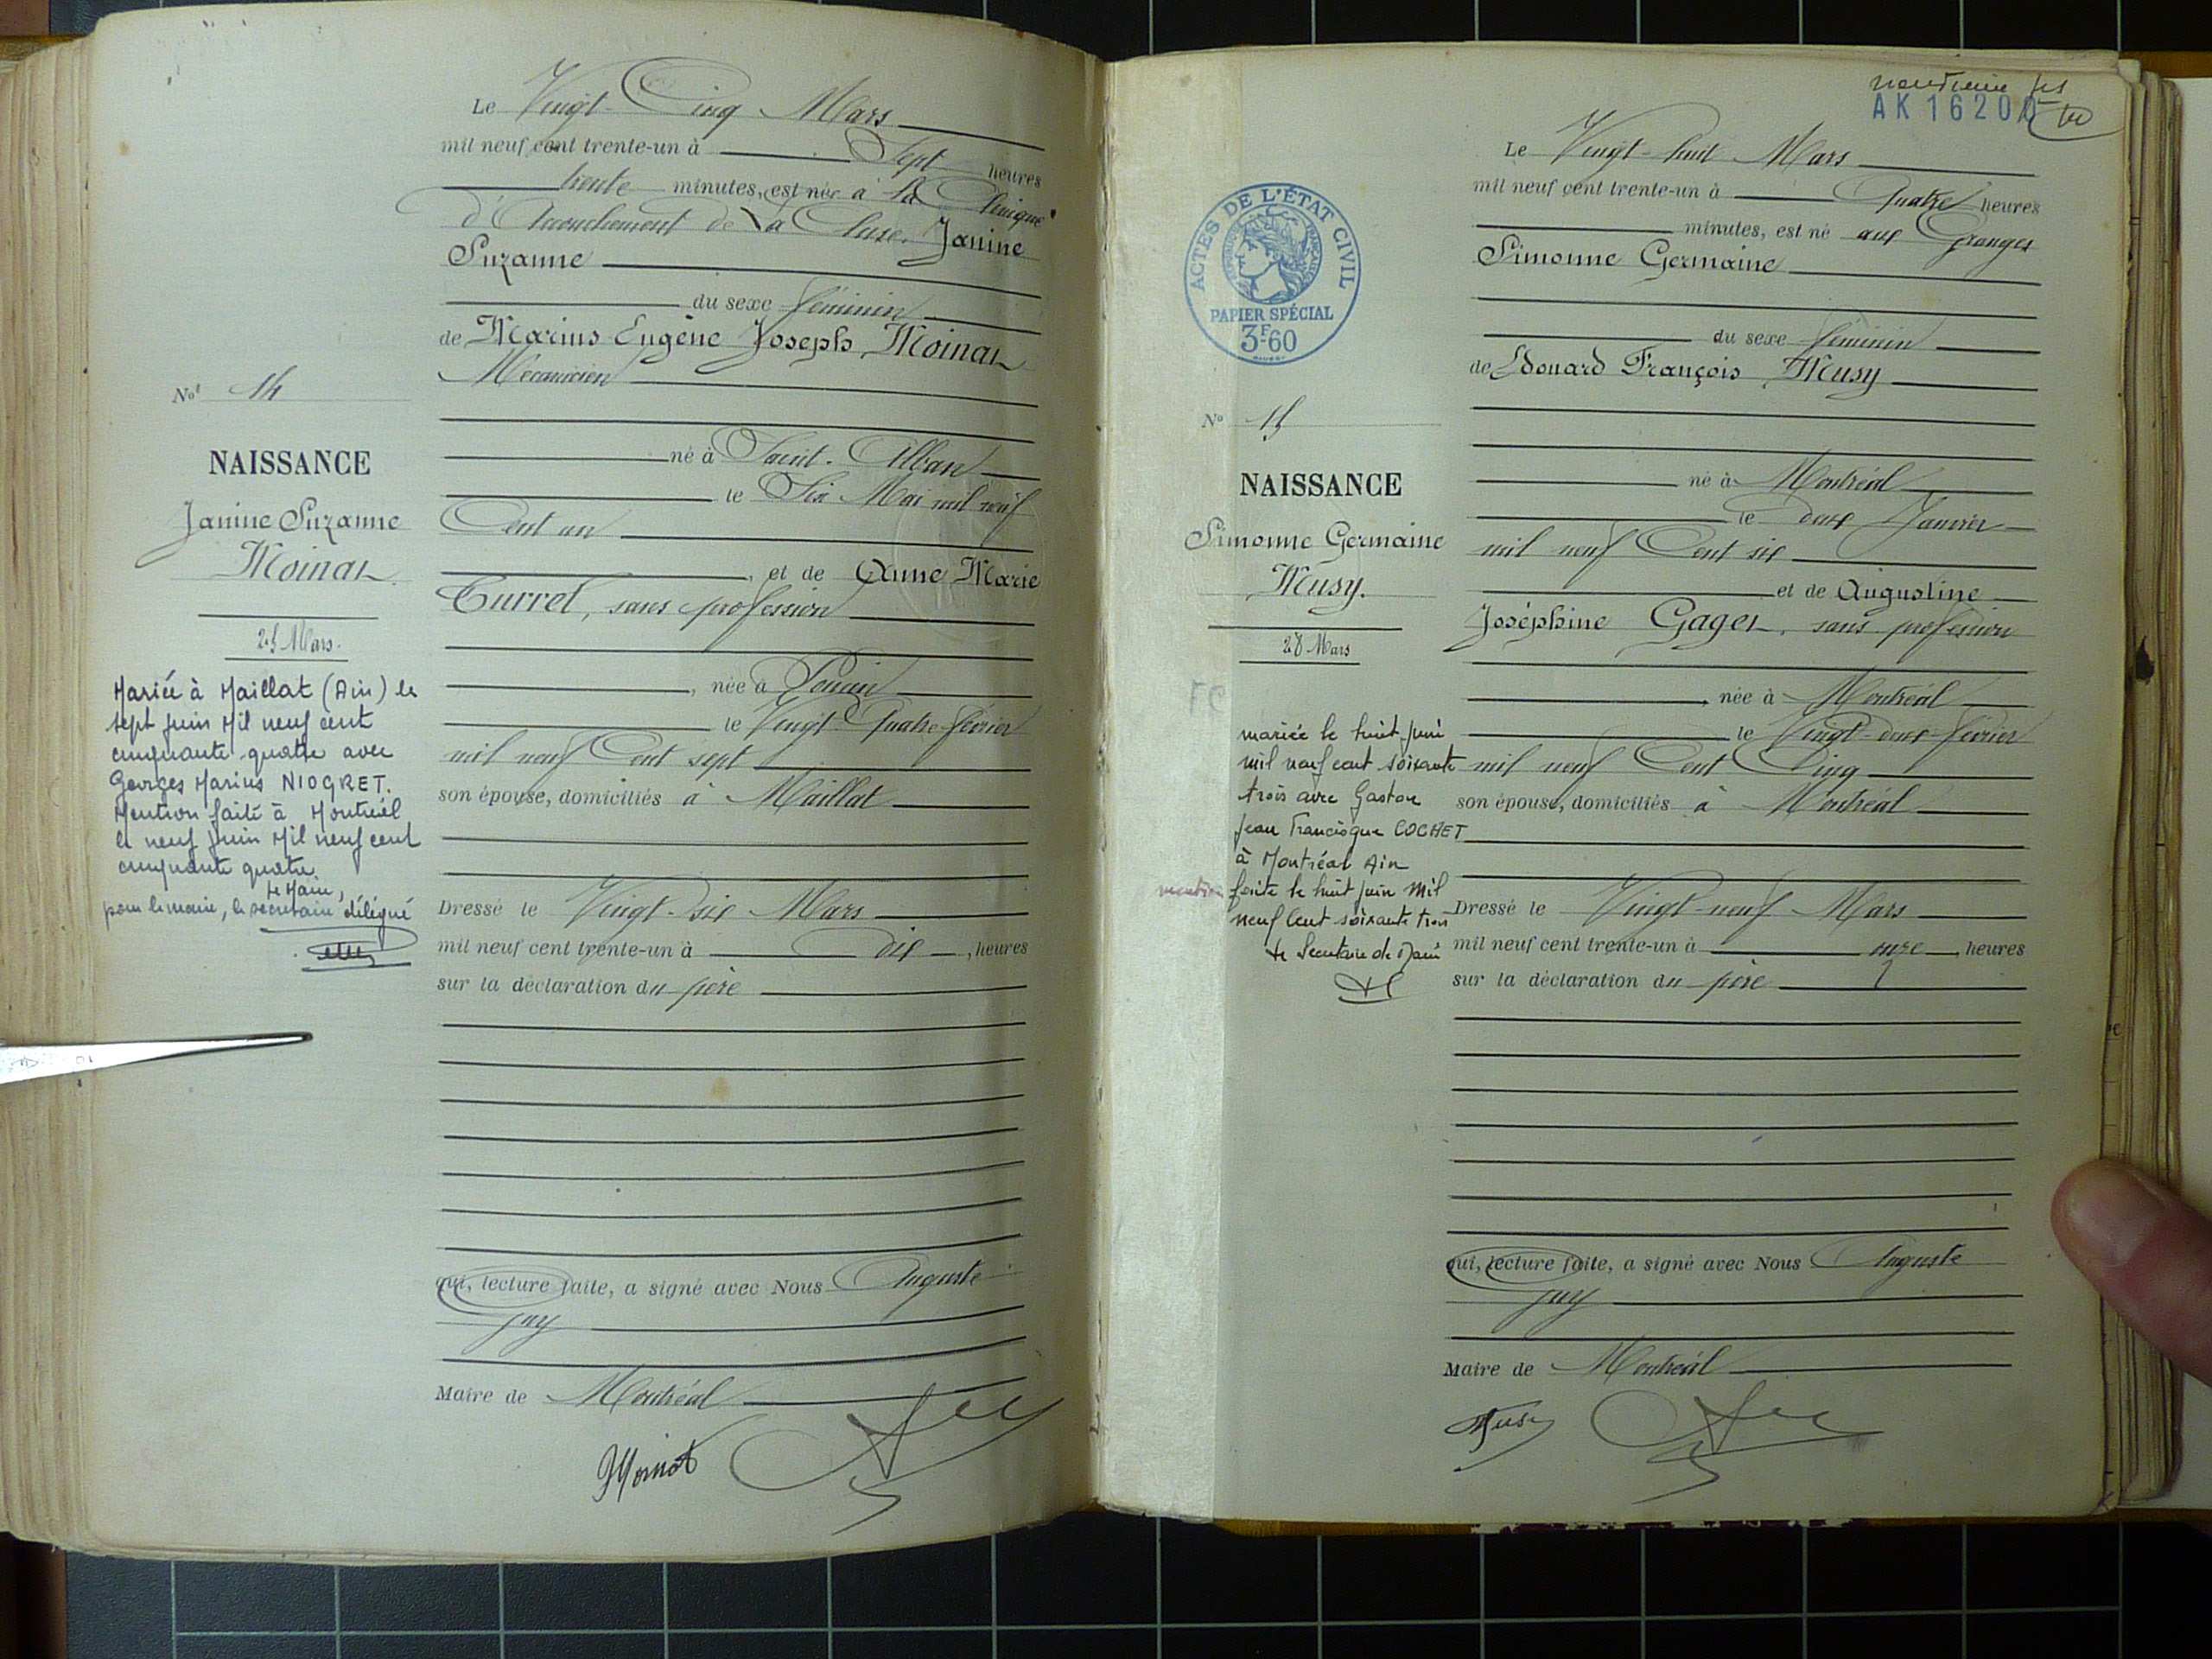 Le Vingt-Cinq Mars
mil neuf cent trente-un à Sept heures
trente minutes, est née à la Clinique
d'Accouchement de La Cluse. Janine
Suzanne
du sexe féminin
de Marius Eugène Joseph Moinat
Mécanicien
né à Saint-Alban
le Six Mai mil neuf
Cent un
, et de Anne Marie
Curret, sans profession
, née à Poncin
le Vingt-Quatre février
mil neuf Cent sept
son épouse, domiciliés à Maillat
Dressé le Vingt-six Mars
mil neuf cent trente-un à dix, heures
sur la déclaration du père
qui, lecture faite, a signé avec Nous Auguste
Juy
Maire de Montréal
Moinat
No 14
NAISSANCE
Janine Suzanne
Moinat
25 Mars.
Mariée à Maillat (Ain) le
sept juin Mil neuf cent
cinquante quatre avec
Georges Marius NIOGRET.
Mention faite à Montréal
le neuf juin Mil neuf cent
cinquante quatre.
Le Maire,
pour le maire, le secrétaire délégué
AK 16200
ACTES DE L'ÉTAT CIVIL
PAPIER SPÉCIAL
3F60
Le Vingt-huit Mars
mil neuf cent trente-un à Quatre heures
minutes, est né aux Granges
Simonne Germaine
du sexe féminin
de Edouard François Musy
né à Montréal
le deux Janvier
mil neuf Cent six
et de Augustine
Joséphine Gaget, sans profession
, née à Montréal
le Vingt-deux février
mil neuf Cent Cinq
son épouse, domiciliés à Montréal
Dressé le Vingt-neuf Mars
mil neuf cent trente-un à onze, heures
sur la déclaration du père
qui, lecture faite, a signé avec Nous Auguste
Juy
Maire de Montréal
Musy
No 15
NAISSANCE
Simonne Germaine
Musy.
28 Mars
mariée le huit juin
mil neuf cent soixante
trois avec Gaston
Jean Francisque COCHET
à Montréal Ain
mention faite le huit juin Mil
neuf Cent soixante trois
Le Secrétaire de Mairie